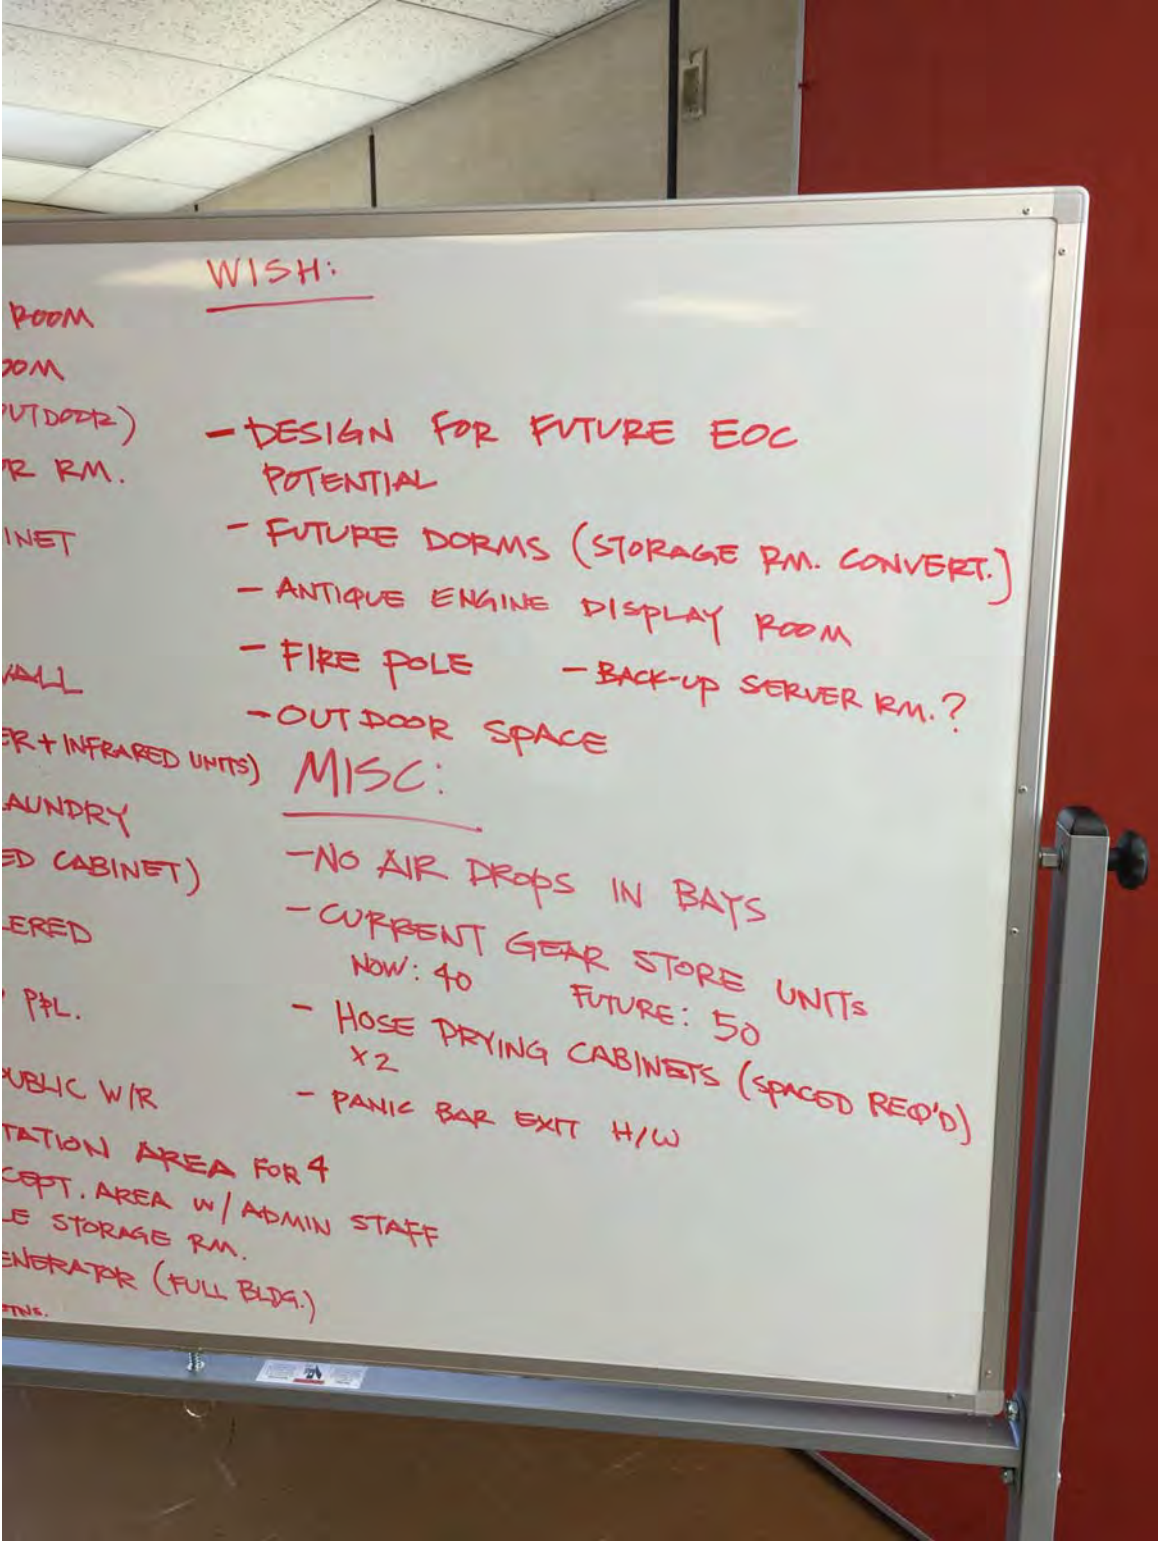 ROOM
OOM
OUTDOOR)
OR RM.
INET
WALL
ER + INFRARED UNITS)
LAUNDRY
ED CABINET)
ERED
P+L.
PUBLIC W/R
TATION AREA FOR 4
CEPT. AREA W/ ADMIN STAFF
LE STORAGE RM.
ENERATOR (FULL BLDG.)
WISH:
- DESIGN FOR FUTURE EOC
POTENTIAL
- FUTURE DORMS (STORAGE RM. CONVERT.)
- ANTIQUE ENGINE DISPLAY ROOM
- FIRE POLE - BACK-UP SERVER RM.?
- OUTDOOR SPACE
MISC:
- NO AIR DROPS IN BAYS
- CURRENT GEAR STORE UNITS
NOW: 40 FUTURE: 50
- HOSE DRYING CABINETS (SPACED REQ'D)
x 2
- PANIC BAR EXIT H/W